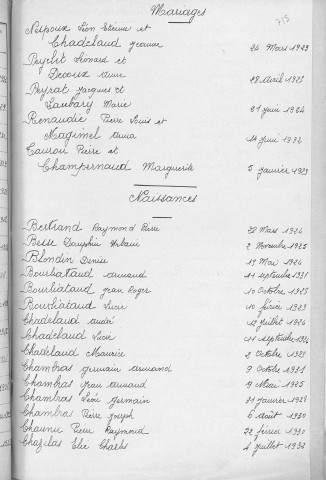 Mariages
Nepoux Léon Etienne et
Chadelaud Jeanne 24 Mars 1923
Peylet Léonard et
Decoux Anna 28 Avril 1923
Peyrat Jacques et
Laubary Marie 21 Juin 1924
Renaudie Pierre Louis et
Magimel Anna 14 Juin 1932
Tauron Pierre et
Champernaud Marguerite 5 Janvier 1929
Naissances
Bertrand Raymond Pierre 22 Mars 1924
Besse Dauphin Urbain 2 Novembre 1925
Blondin Denise 19 Mai 1924
Bourliataud Armand 11 septembre 1931
Bourliataud Jean Roger 10 Octobre 1925
Bourliataud Lucie 10 février 1923
Chadelaud André 12 Juillet 1924
Chadelaud Lucie 11 septembre 1924
Chadelaud Maurice 2 Octobre 1921
Chambras Germain Armand 9 Octobre 1931
Chambras Jean Armand 9 Mai 1925
Chambras Léon Germain 31 Janvier 1928
Chambras Pierre Joseph 6 août 1930
Chaunu Pierre Raymond 22 février 1930
Chazelas Elie Charles 4 Juillet 1932